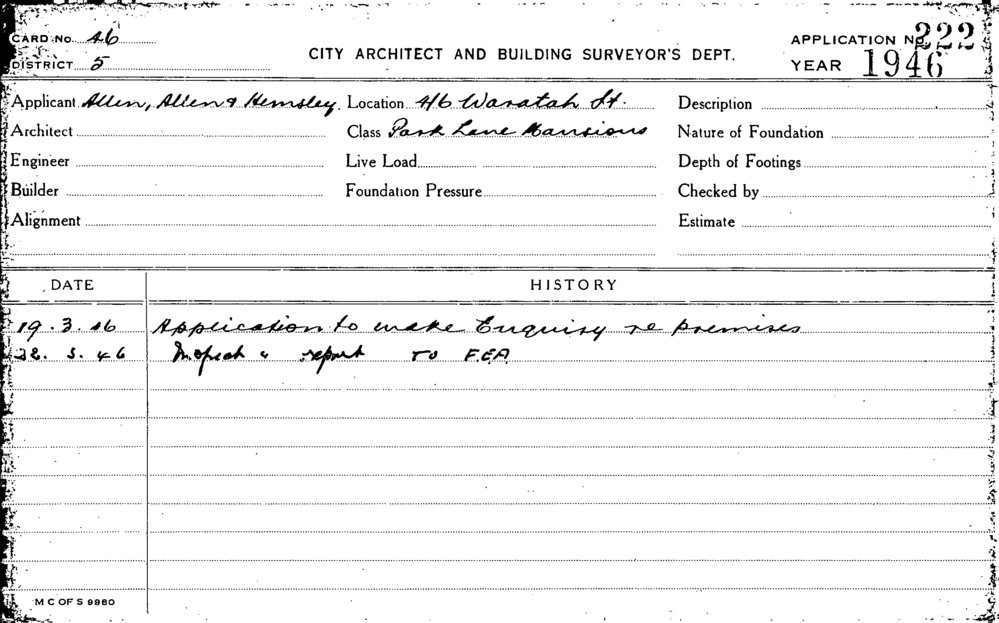 CARD No. 46
DISTRICT 5
CITY ARCHITECT AND BUILDING SURVEYOR'S DEPT.
APPLICATION No. 222
YEAR 1946
Applicant Allen, Allen & Hemsley. Location 4/6 Waratah St. Description
Architect Class Park Lane Mansions Nature of Foundation
Engineer Live Load Depth of Footings
Builder Foundation Pressure Checked by
Alignment Estimate
DATE HISTORY
19.3.46 Application to make Enquiry re premises
22.3.46 Inspect & report TO F.E.A.
M C OF S 9980